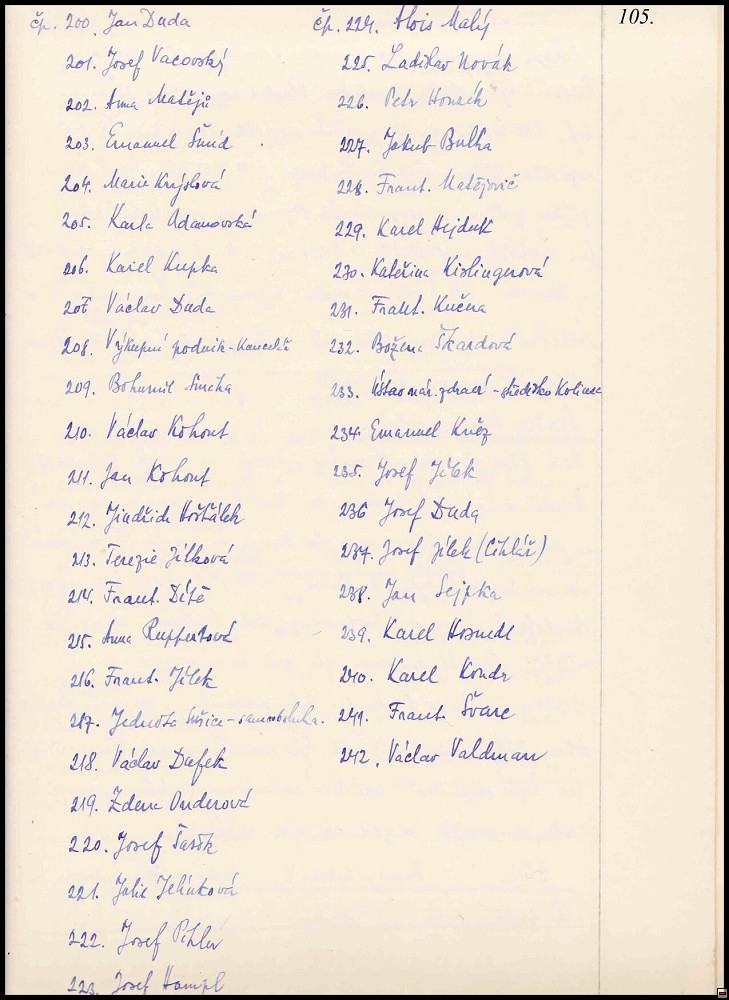 105.
čp. 200. Jan Duda
201. Josef Vacovský
202. Anna Matějů
203. Emanuel Šmíd
204. Marie Krejslová
205. Karla Adamovská
206. Karel Kupka
207 Václav Duda
208. Výkupní podnik-kancelář
209. Bohumil Šincha
210. Václav Kohout
211. Jan Kohout
212. Jindřich Hošťálek
213. Terezie Jílková
214. Frant. Dítě
215. Anna Ruppertová
216. Frant. Jílek
217. Jednota Sušice-samoobsluha.
218. Václav Dufek
219. Zdena Onderová
220. Josef Šašek
221. Julie Jelínková
222. Josef Pihler
223. Josef Hampl
čp. 224. Alois Malý
225. Ladislav Novák
226. Petr Honzík
227. Jakub Bulka
228. Frant. Matějovič
229. Karel Hejduk
230. Kateřina Kislingerová
231. Frant. Kučera
232. Božena Škardová
233. Ústav nár. zdraví - středisko Kolinec
234. Emanuel Kněz
235. Josef Jílek
236 Josef Duda
237. Josef Jílek (Cihlář)
238. Jan Sejpka
239. Karel Hosnedl
240. Karel Kondr
241. Frant. Švarc
242. Václav Valdman